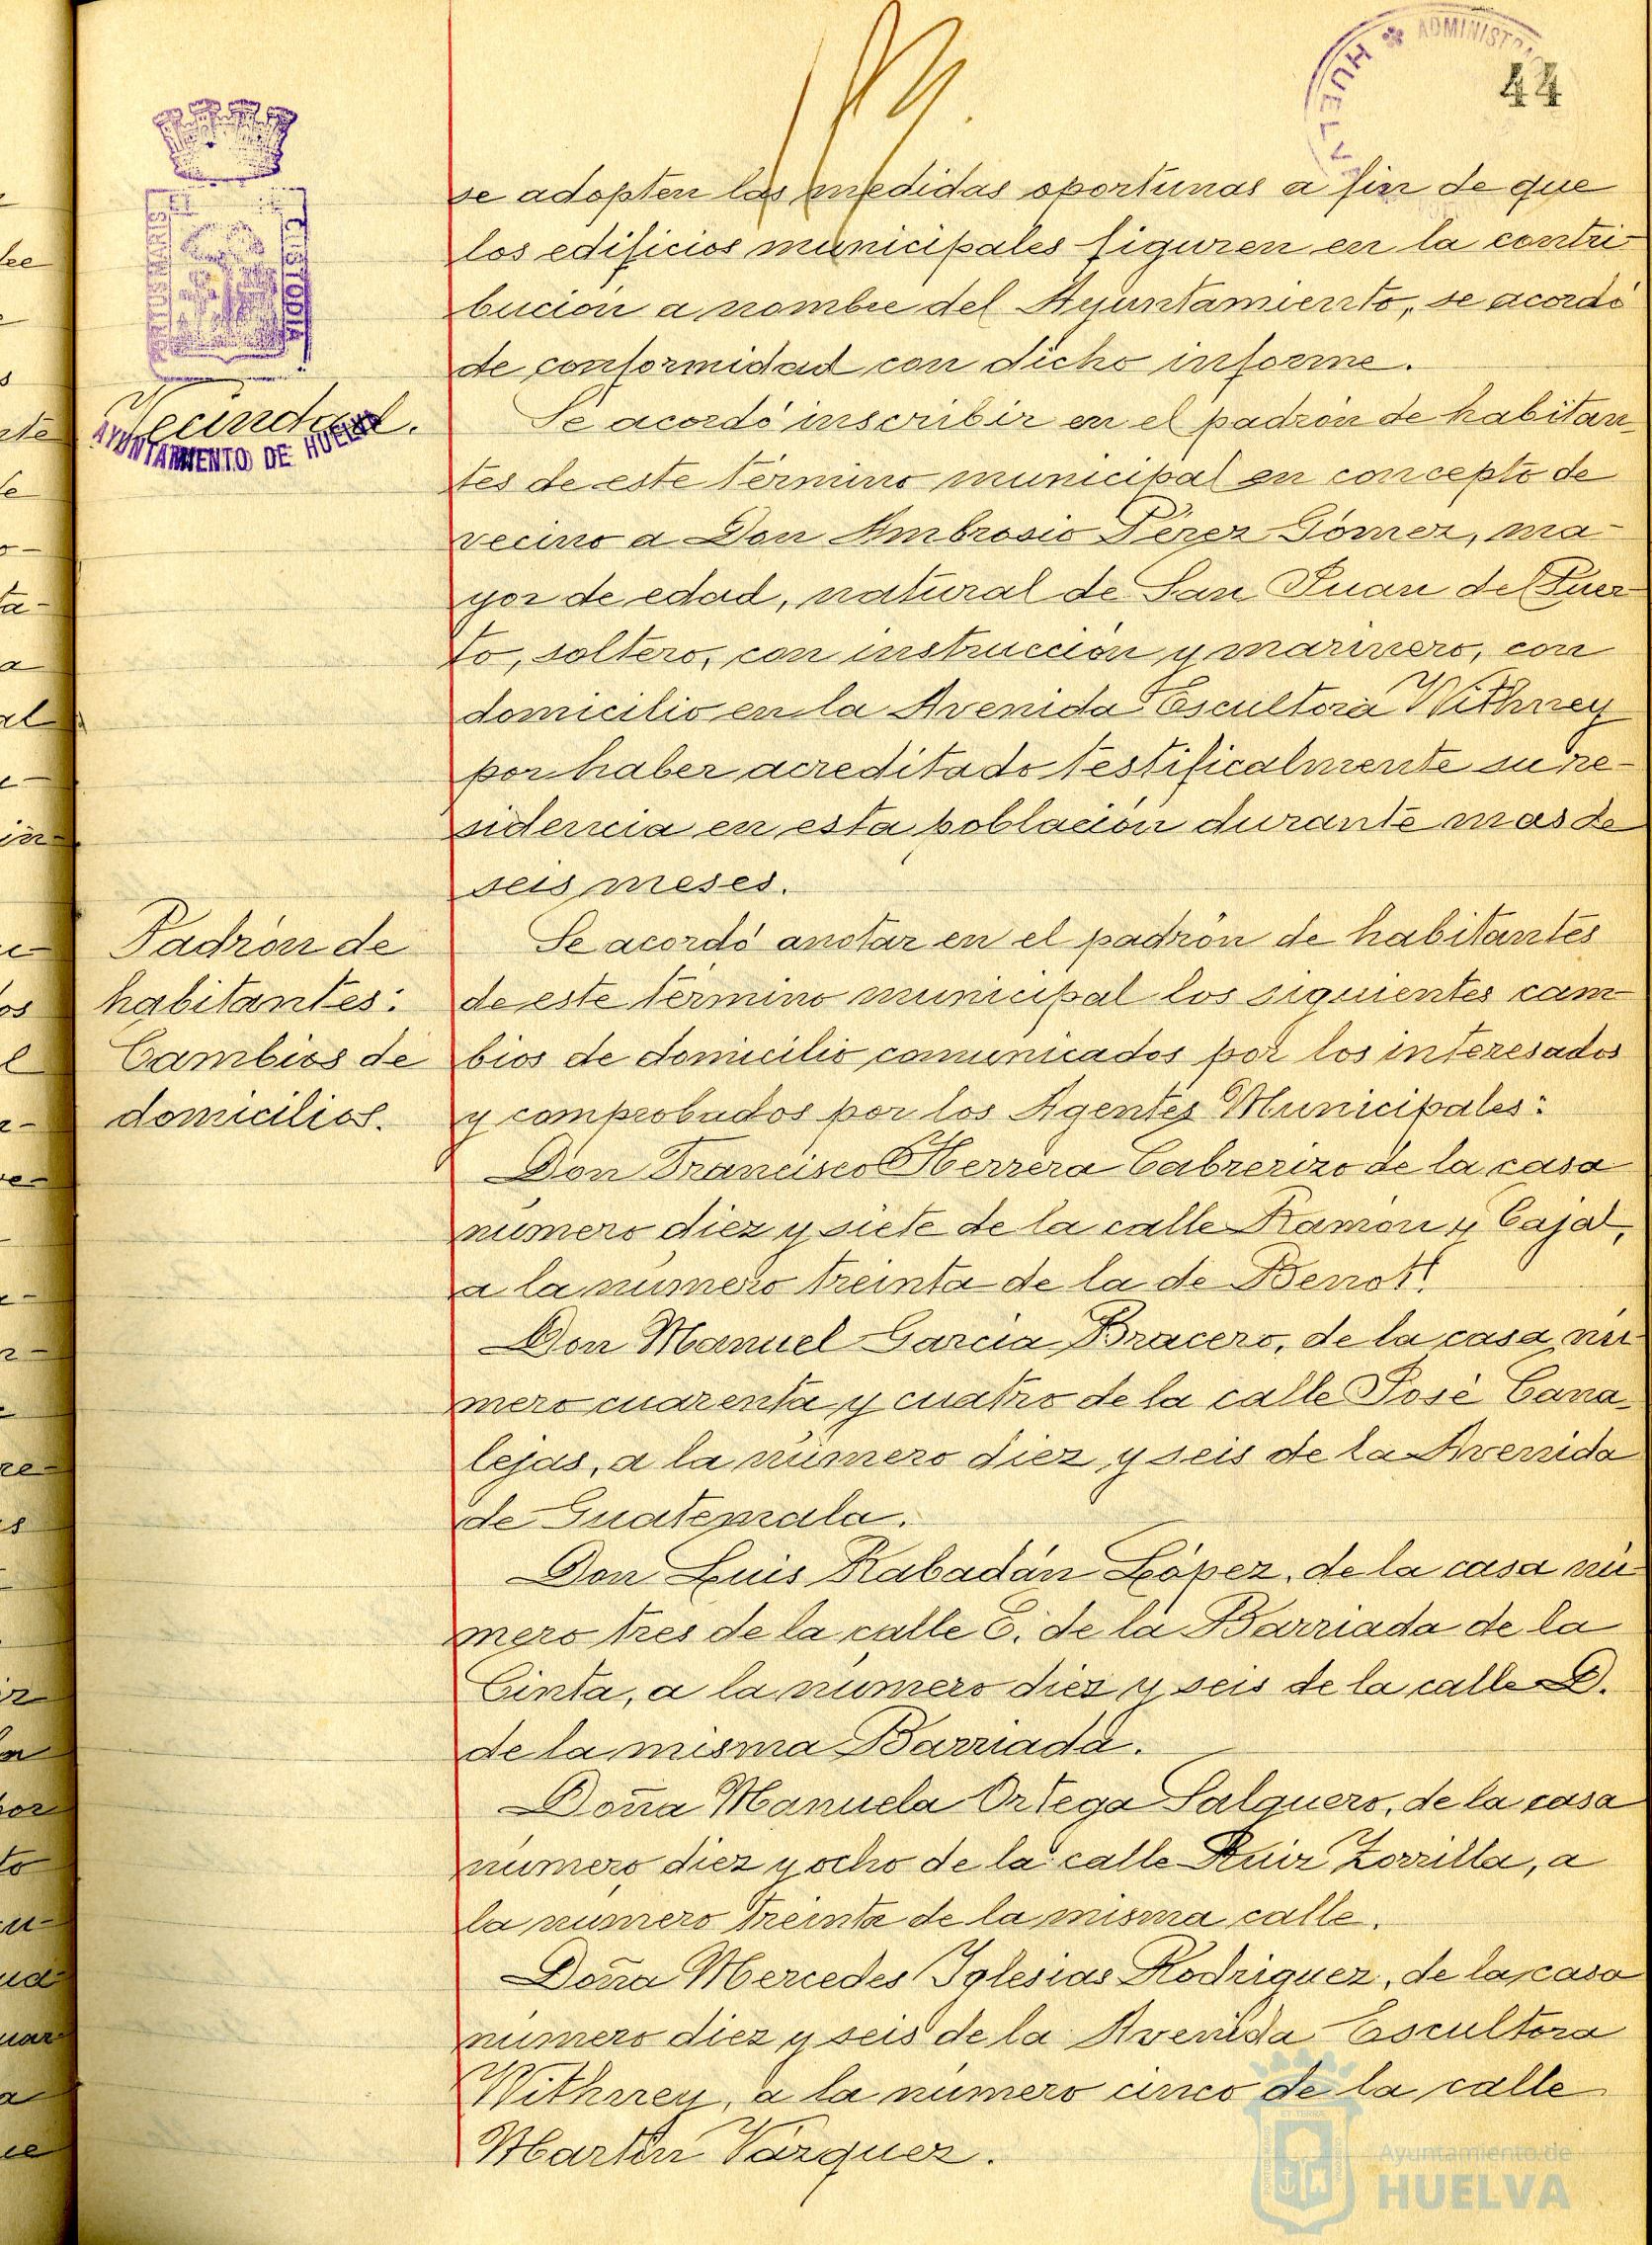 ADMINISTRA
HUELVA
44
PORTUS MARIS
ET
CUSTODIA
AYUNTAMIENTO DE HUELVA
se adopten las medidas oportunas a fin de que
los edificios municipales figuren en la contri-
bución a nombre del Ayuntamiento, se acordó
de conformidad con dicho informe.
Vecindad.
Se acordó inscribir en el padrón de habitan-
tes de este término municipal en concepto de
vecino a Don Ambrosio Pérez Gómez, ma-
yor de edad, natural de San Juan del Puer-
to, soltero, con instrucción y marinero, con
domicilio en la Avenida Escultora Withney
por haber acreditado testificalmente su re-
sidencia en esta población durante mas de
seis meses.
Padrón de
habitantes:
Cambios de
domicilios.
Se acordó anotar en el padrón de habitantes
de este término municipal los siguientes cam-
bios de domicilio comunicados por los interesados
y comprobados por los Agentes Municipales:
Don Francisco Herrera Cabrerizo de la casa
número diez y siete de la calle Ramón y Cajal,
a la número treinta de la de Benot.
Don Manuel Garcia Bracero, de la casa nú-
mero cuarenta y cuatro de la calle José Cana-
lejas, a la número diez y seis de la Avenida
de Guatemala.
Don Luis Rabadán López, de la casa nú-
mero tres de la calle E. de la Barriada de la
Cinta, a la número diez y seis de la calle D.
de la misma Barriada.
Doña Manuela Ortega Salguero, de la casa
número diez y ocho de la calle Ruiz Zorrilla, a
la número treinta de la misma calle.
Doña Mercedes Iglesias Rodriguez, de la casa
número diez y seis de la Avenida Escultora
Withney, a la número cinco de la calle
Martín Vázquez.
Ayuntamiento de
HUELVA